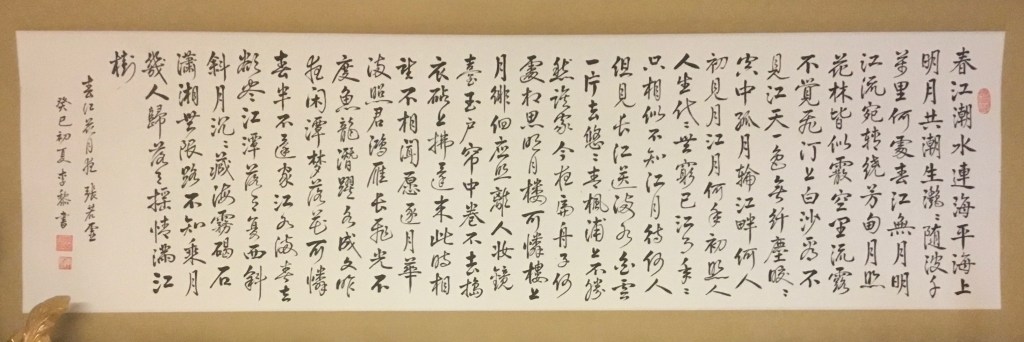 春江潮水連海平海上
明月共潮生灩〻随波千
萬里何處春江無月明
江流宛轉繞芳甸月照
花林皆似霰空里流霜
不覺飛汀上白沙看不
見江天一色無纤塵皎〻
空中孤月輪江畔何人
初見月江月何年初照人
人生代〻無窮已江月年〻
只相似不知江月待何人
但見长江送流水白雲
一片去悠〻青楓浦上不勝
愁誰家今夜扁舟子何
處相思明月樓可憐樓上
月徘徊應照離人妝鏡
臺玉户帘中卷不去擣
衣砧上拂還来此時相
望不相聞愿逐月華
流照君鴻雁长飛光不
度魚龍潜躍水成文昨
夜闲潭梦落花可憐
春半不還家江水流春去
欲尽江潭落月復西斜
斜月沉〻藏海霧碣石
瀟湘無限路不知乘月
幾人歸落月摇情满江
樹
春江花月夜 張若虚
癸巳初夏 李 書